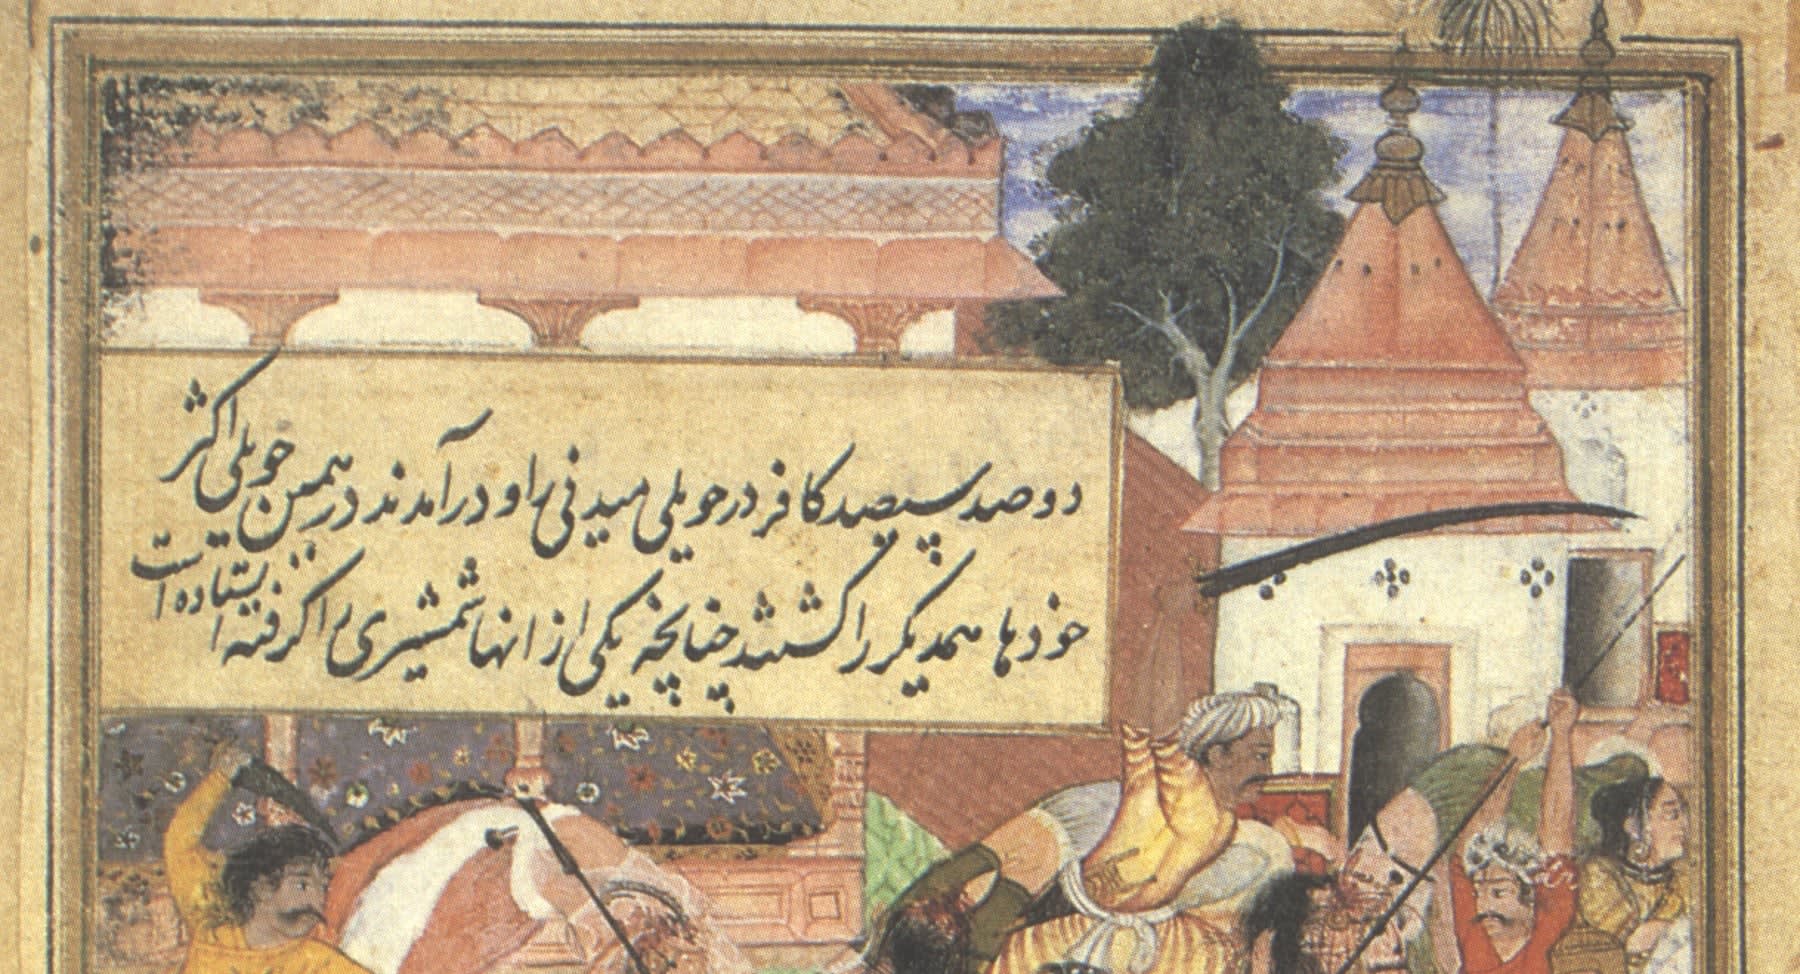 دو صد سیصد کافر در حویلی میدنی راو در آمدند در همین حویلی اکثر
خودها همدیکر را کشتند چنانچه یکی از انها شمشیری را کرفته ایستاده است